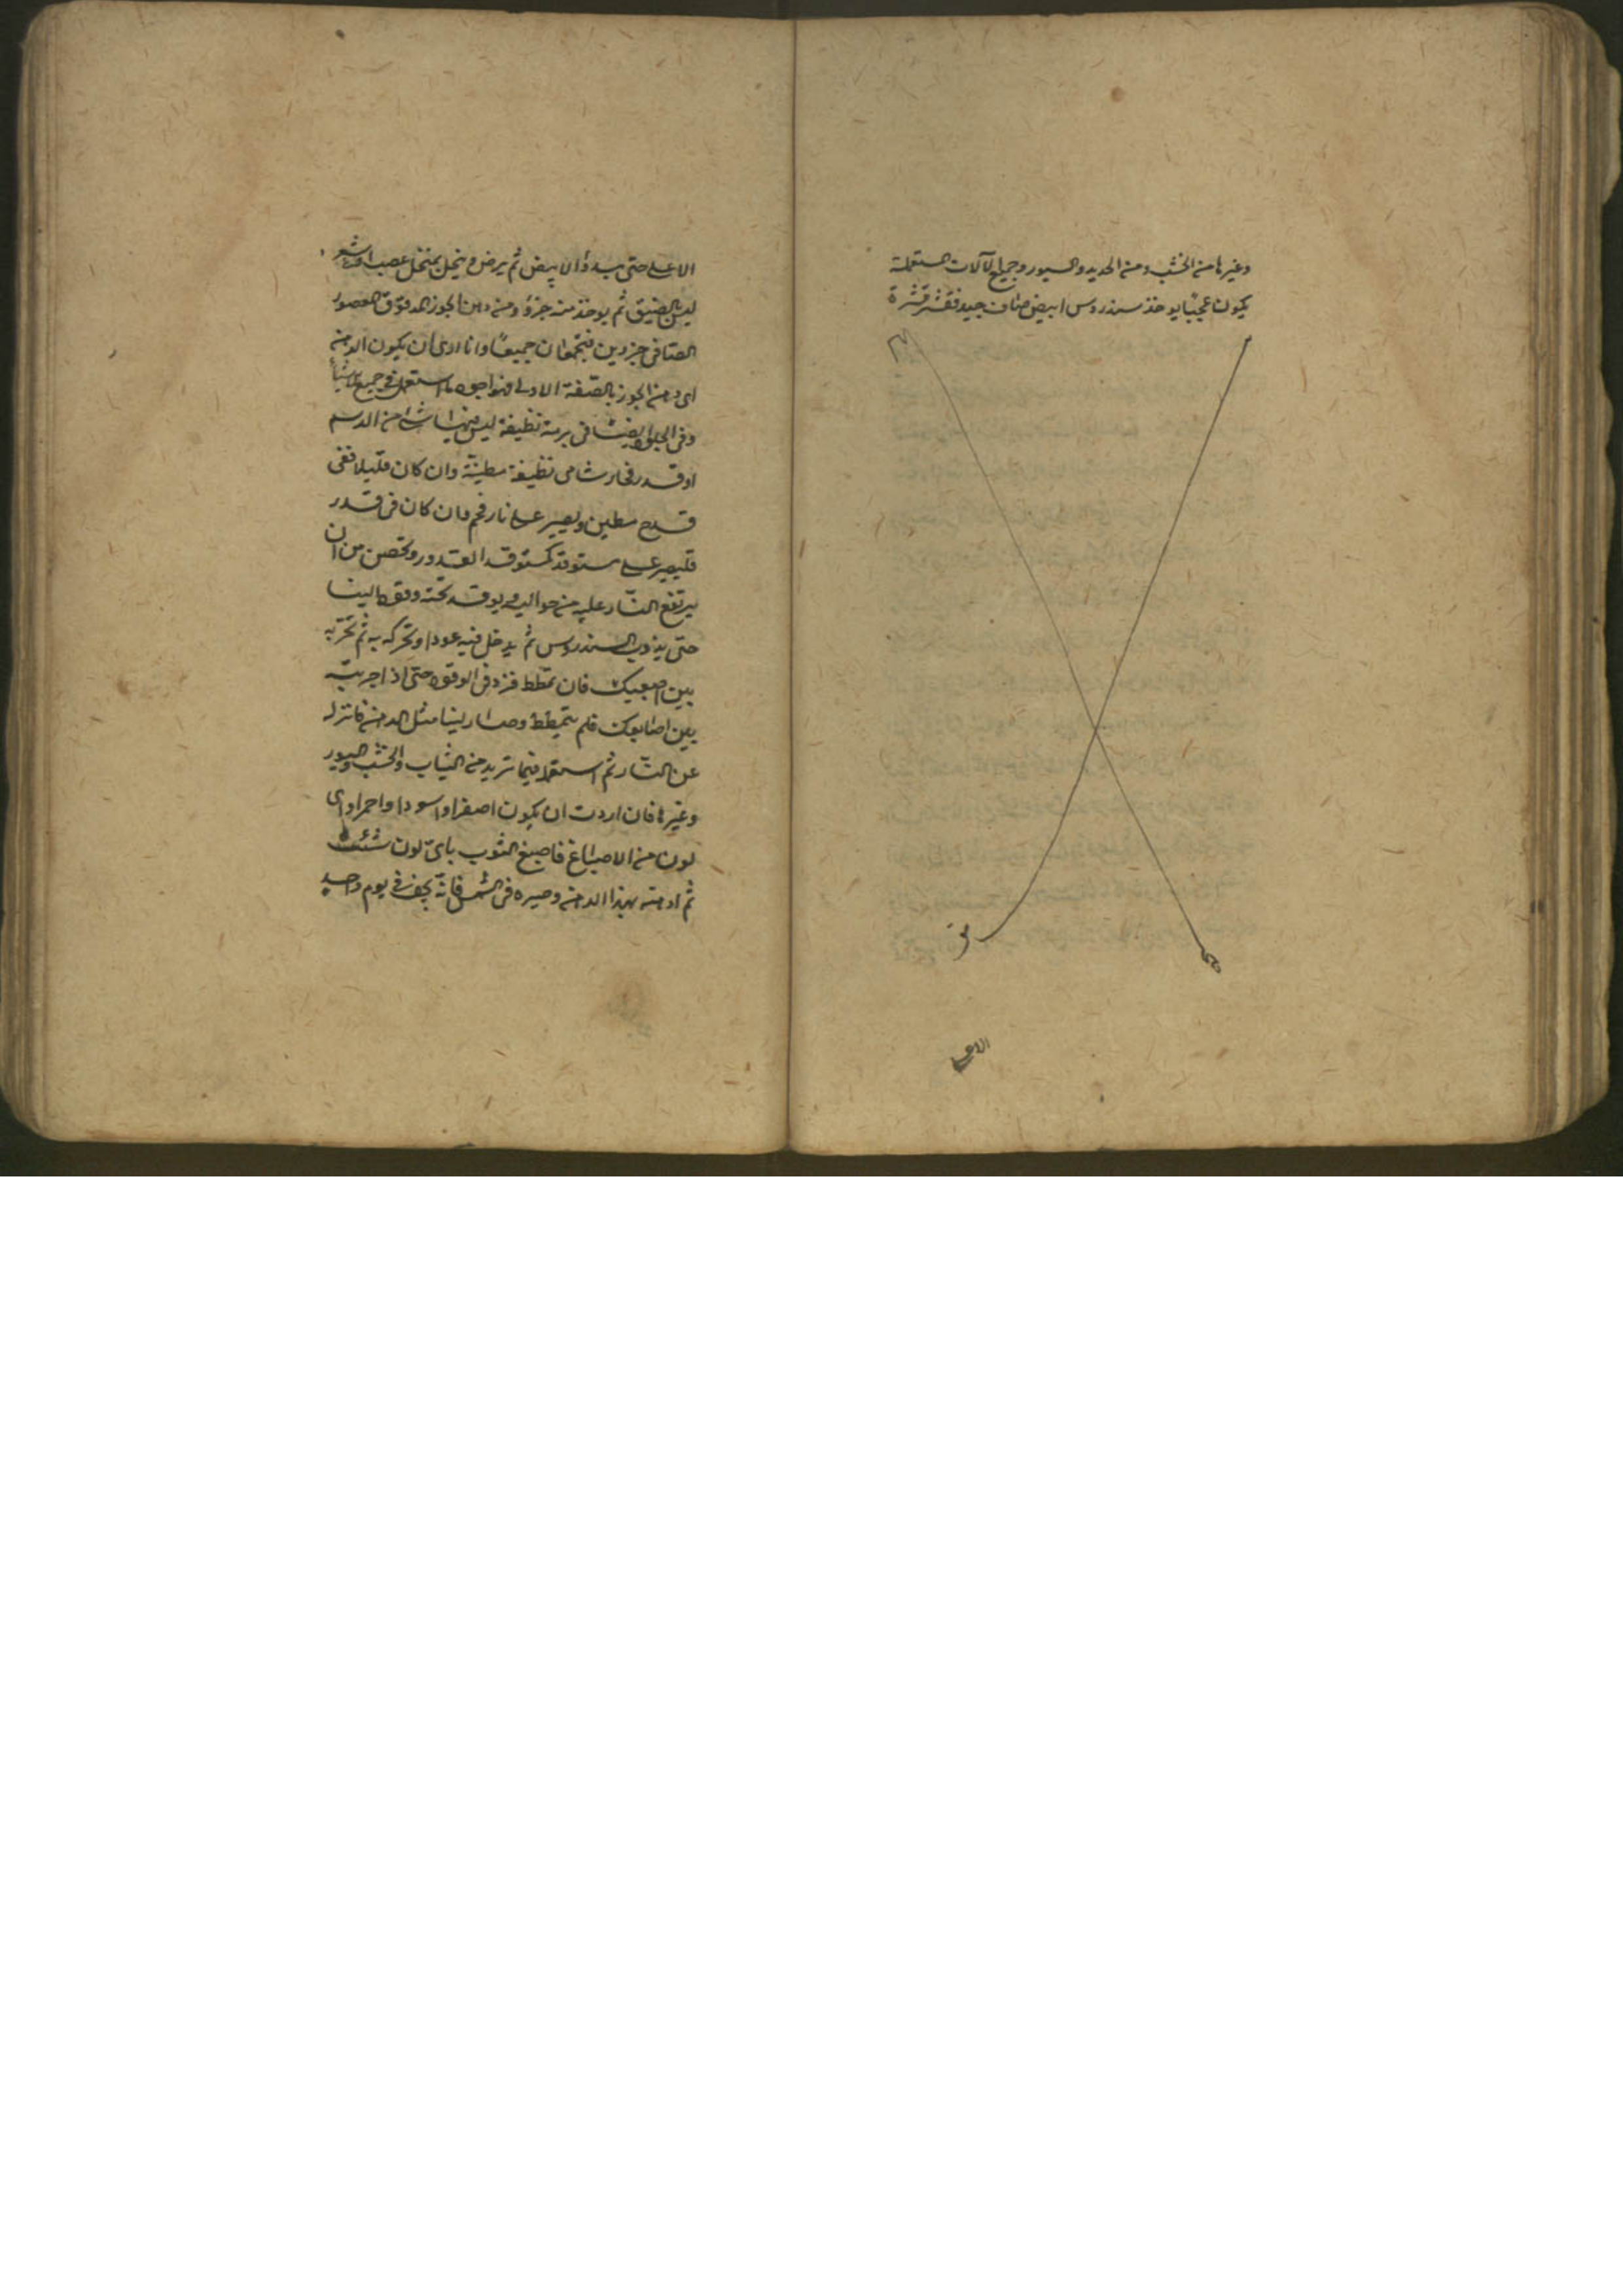 وغيرها من الخشب ومن الحديد والسيور وجميع الآلات المستعملة
يكون عجيبا يوخذ سندروس ابيض صاف جيد فقشر قشرة
الاعلى
الاعلى حتى يبدوا الابيض ثم يرض وينخل بمنخل عصب او شعر
ليس بالضيق ثم يوخذ منه جزؤ ومن دهن الجوز المدقوق المعصور
الصافى جزوين فيجمعان جميعا وانا ارى ان يكون الدهن
اى دهن الجوز بالصفة الاولى فهو اجود ما استعمل فى جميع الاشيا
وفى الجلى ايضا فى برمة نظيفة ليس فيها شئ من الدسم
او قدر فخار شامى نظيفة مطينة وان كان قليلا ففى
قدح مطين ويصير على نار فحم وان كان فى قدر
فليصير على مستوقد كمستوقد القدور وتحصن من ان
يرتفع النار عليه من حواليه ويوقد تحته وقودا لينا
حتى يذوب السندروس ثم يدخل فيه عودا وتحركه به ثم تجربه
بين اصبعيك فان تمطط فزد فى الوقود حتى اذا جربته
بين اصابعك فلم يتمطط وصار لينا مثل الدهن فانزله
عن النار ثم استعمله فيما تريد من الثياب والخشب والسيور
وغيرها فان اردت ان يكون اصفر او اسودا واحمر او اى
لون من الاصباغ فاصبغ الثوب باى لون شئت
ثم ادهنه بهذا الدهن وصيره فى الشمس فانه يجف فى يوم واحد